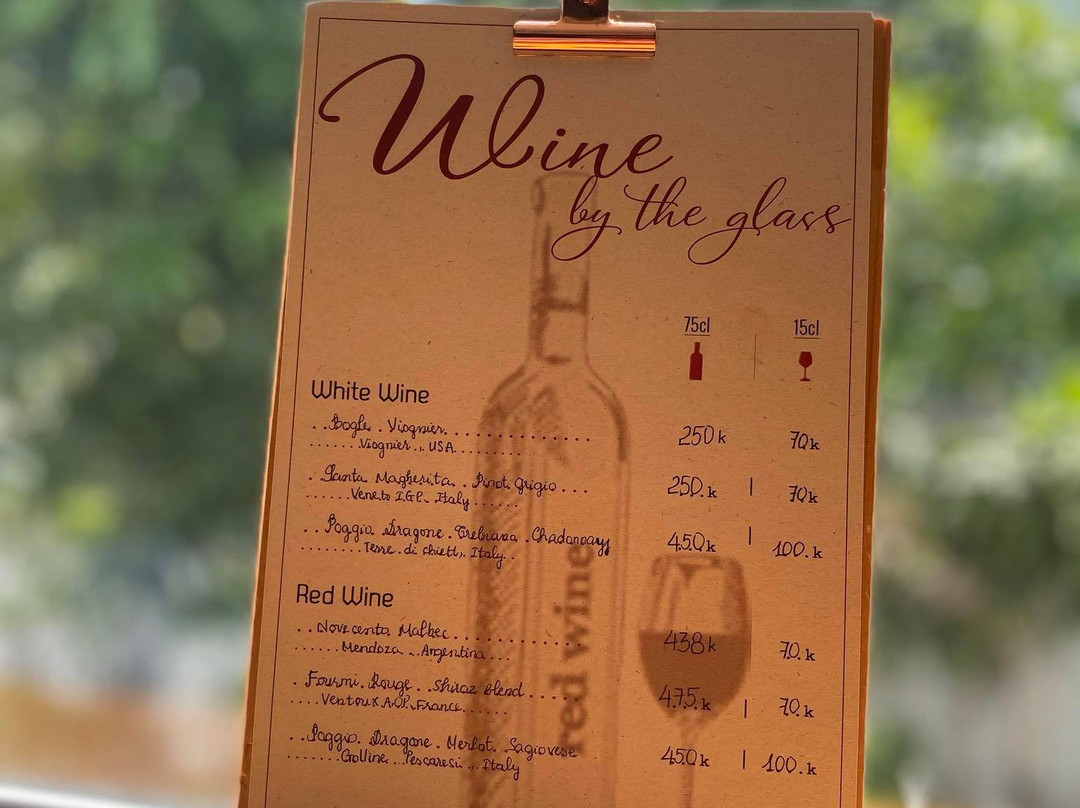 Wine
by the glass
75cl 15cl
White Wine
Bogle Viognier 250k 70k
Viognier, USA
Santa Magherita Pinot Grigio 250.k 70k
Veneto IGP. Italy
Poggio Dragone Trebiana Chadonnayy 450k 100.k
Terre di chietti, Italy
Red Wine
Novecento Malbec 438k 70.k
Mendoza Argentina
Fourmi Rouge Shiraz blend 475.k 70.k
Ventoux A.O.P. France
Poggio Dragone Merlot Sagiovese 450k 100.k
Colline Pescaresi, Italy
red wine